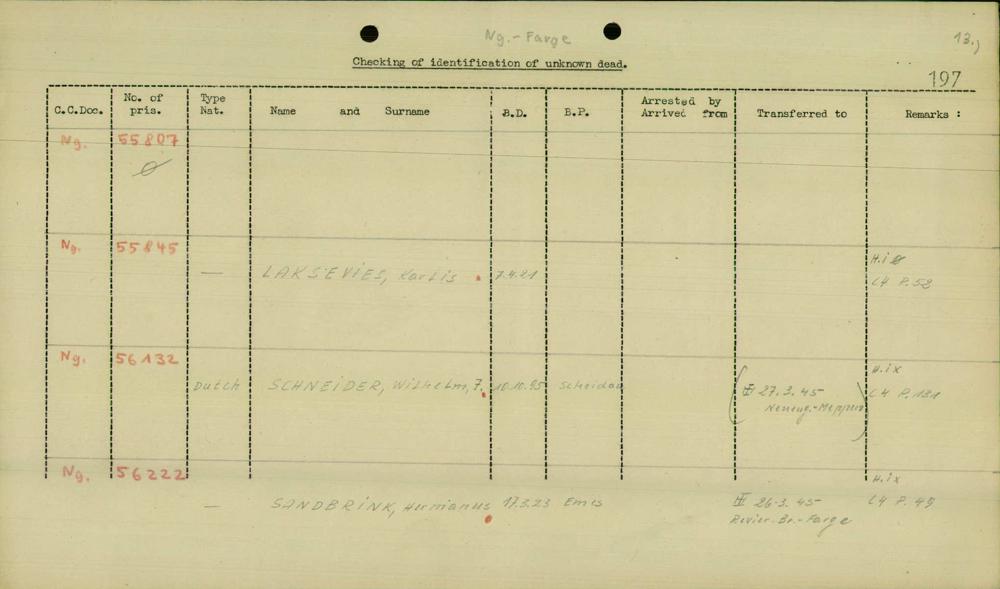 Ng.-Farge
13.)
Checking of identification of unknown dead.
197
C.C.Doc. No. of pris. Type Nat. Name and Surname B.D. B.P. Arrested by Arrived from Transferred to Remarks :
Ng. 55807
Ng. 55845
— LAKSEVIES, Karlis 7.4.21 H.i
L4 P.52
Ng. 56132 H.ix
Dutch SCHNEIDER, Wilhelm, 7. 10.10.95 Scheidau III 27.3.45 L4 P.131
Neueng.-Meppen
Ng. 56222 H.ix
— SANDBRINK, Hermanus 17.3.23 Emes III 26.3.45 L4 P.45
Revier.Br.-Farge